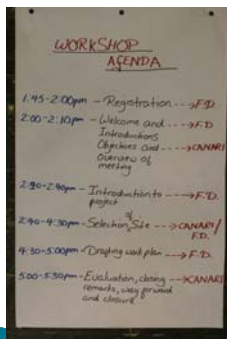 WORKSHOP
AGENDA
1.45-2:00pm - Registration ---> F.D.
2:00-2:10pm - Welcome and ---> F.D
Introductions
Objectives and ---> CANARI
Overview of
meeting
2:10-2:40pm - Introduction to ---> F.D.
project
of
2:40-4:30pm - Selection Site ---> CANARI/
F.D.
4:30-5:00pm - Drafting work plan ---> F.D.
5:00-5:30pm - Evaluation, closing ---> CANARI
remarks, way forward
and closure